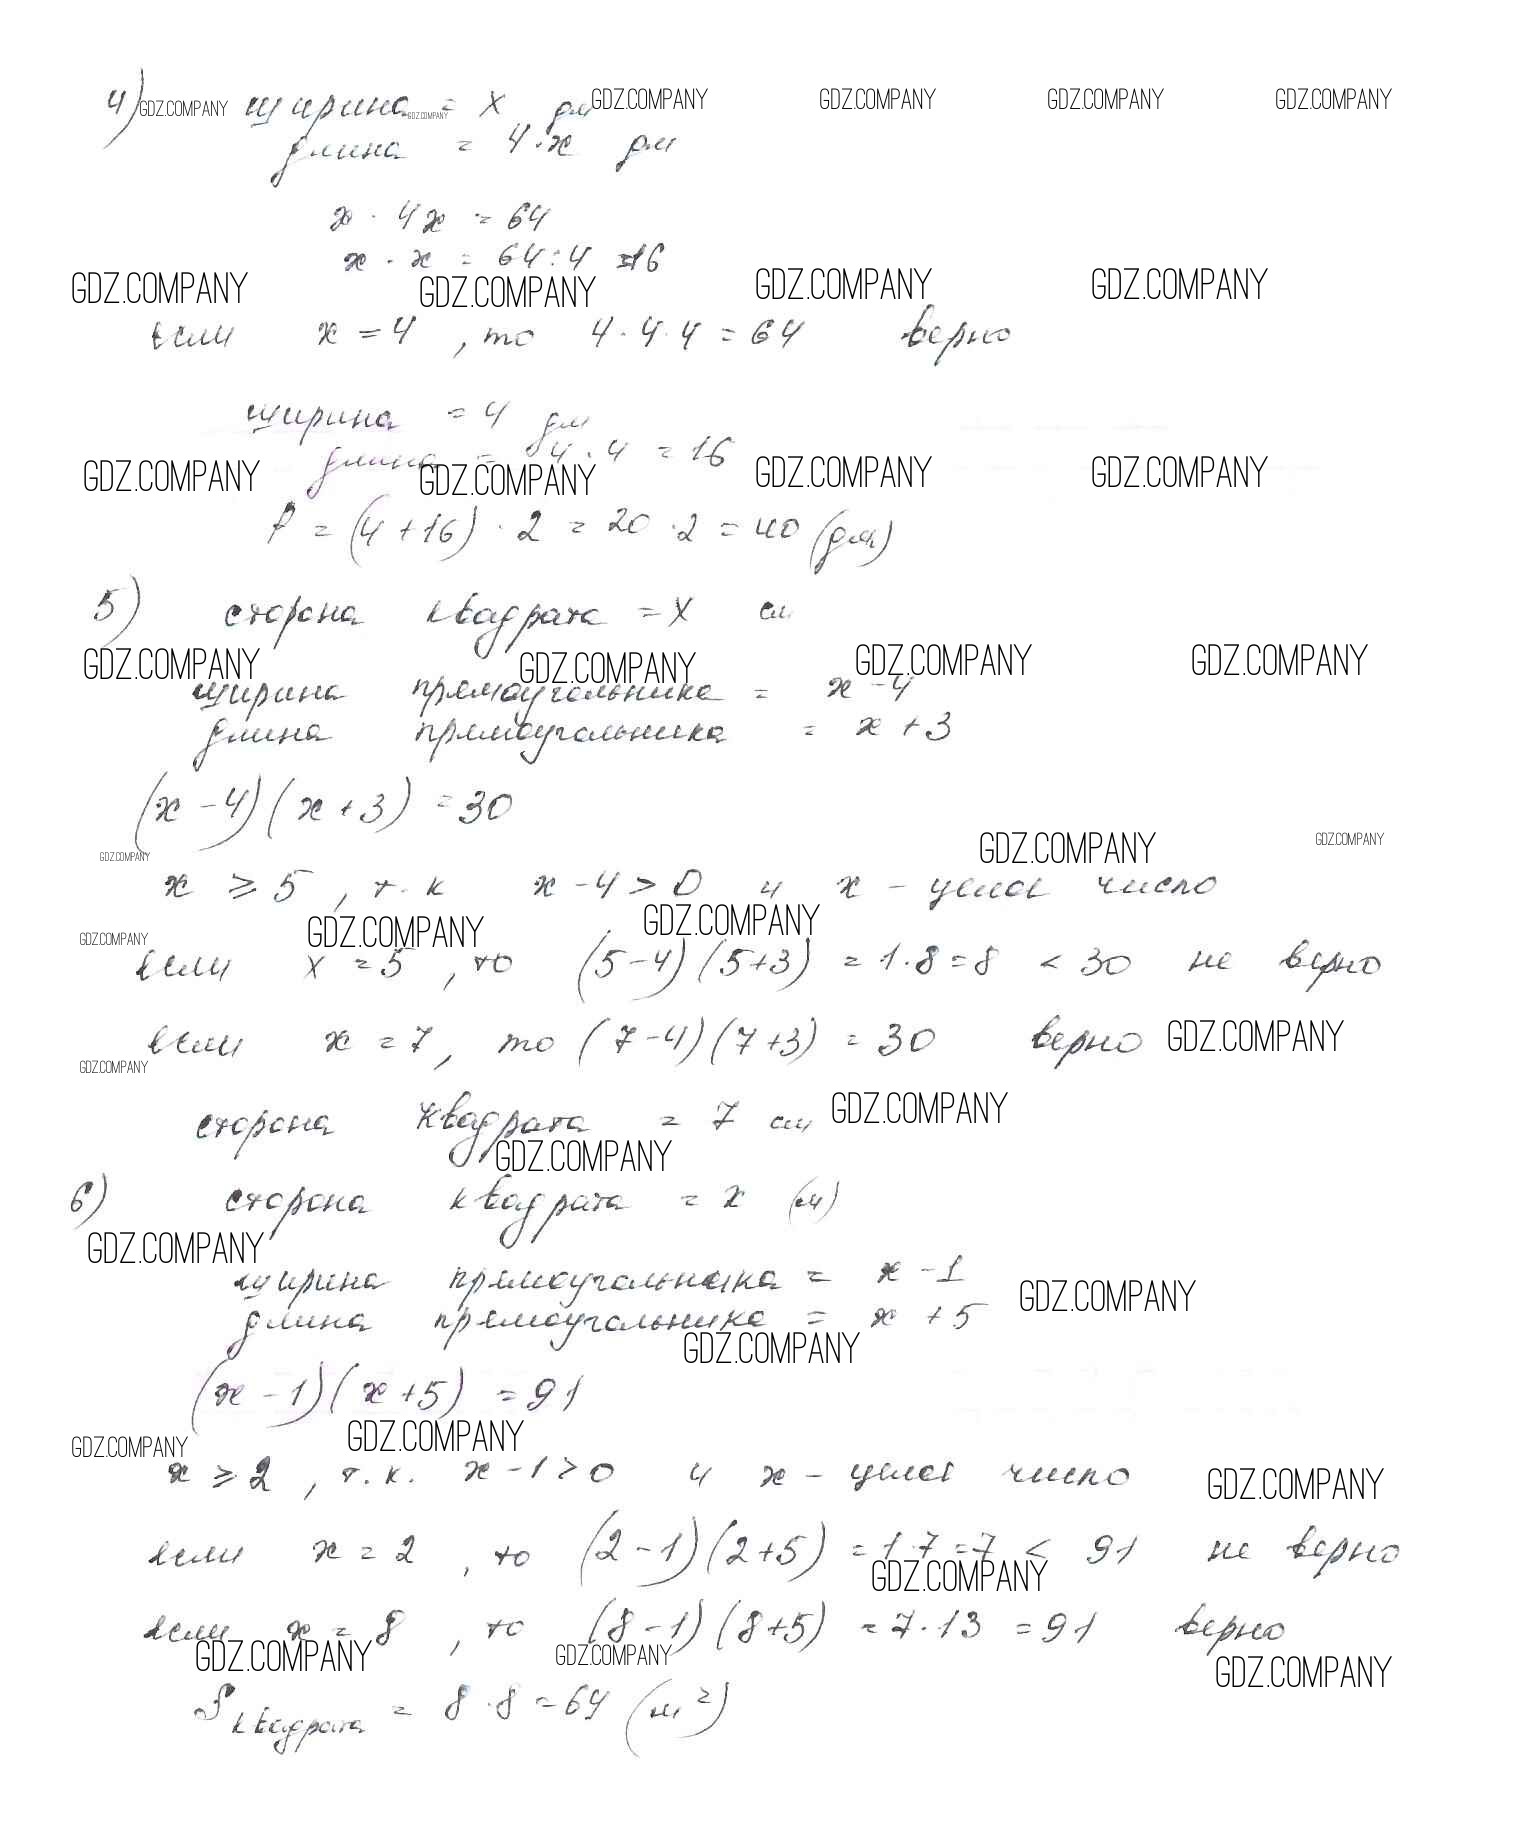 4) GDZ.COMPANY ширина = x дм GDZ.COMPANY GDZ.COMPANY GDZ.COMPANY GDZ.COMPANY GDZ.COMPANY
длина = 4·x дм
x · 4x = 64
x · x = 64:4 =16
GDZ.COMPANY GDZ.COMPANY GDZ.COMPANY GDZ.COMPANY
если x = 4 , то 4·4·4 = 64 верно
ширина = 4 дм
длина = 4·4 = 16
GDZ.COMPANY GDZ.COMPANY GDZ.COMPANY GDZ.COMPANY
P = (4+16)·2 = 20·2 = 40 (дм)
5) сторона квадрата = x см
GDZ.COMPANY GDZ.COMPANY GDZ.COMPANY GDZ.COMPANY
ширина прямоугольника = x-4
длина прямоугольника = x+3
(x-4)(x+3) = 30
GDZ.COMPANY GDZ.COMPANY GDZ.COMPANY
x ≥ 5 , т.к x-4>0 и x - целое число
GDZ.COMPANY GDZ.COMPANY GDZ.COMPANY
если x = 5 , то (5-4)(5+3) = 1·8=8 < 30 не верно
если x = 7, то (7-4)(7+3) = 30 верно GDZ.COMPANY
GDZ.COMPANY
сторона квадрата = 7 см GDZ.COMPANY
GDZ.COMPANY
6) сторона квадрата = x (м)
GDZ.COMPANY
ширина прямоугольника = x-1
GDZ.COMPANY
длина прямоугольника = x+5
GDZ.COMPANY
(x-1)(x+5) = 91
GDZ.COMPANY GDZ.COMPANY
x ≥ 2 , т.к. x-1>0 и x - целое число GDZ.COMPANY
если x = 2 , то (2-1)(2+5) = 1·7=7 < 91 не верно
GDZ.COMPANY
если x = 8 , то (8-1)(8+5) = 7·13 = 91 верно
GDZ.COMPANY GDZ.COMPANY GDZ.COMPANY
S квадрата = 8·8=64 (м²)